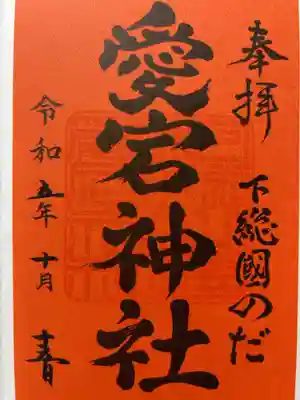 奉拝
下総國のだ
愛宕神社
令和五年十月